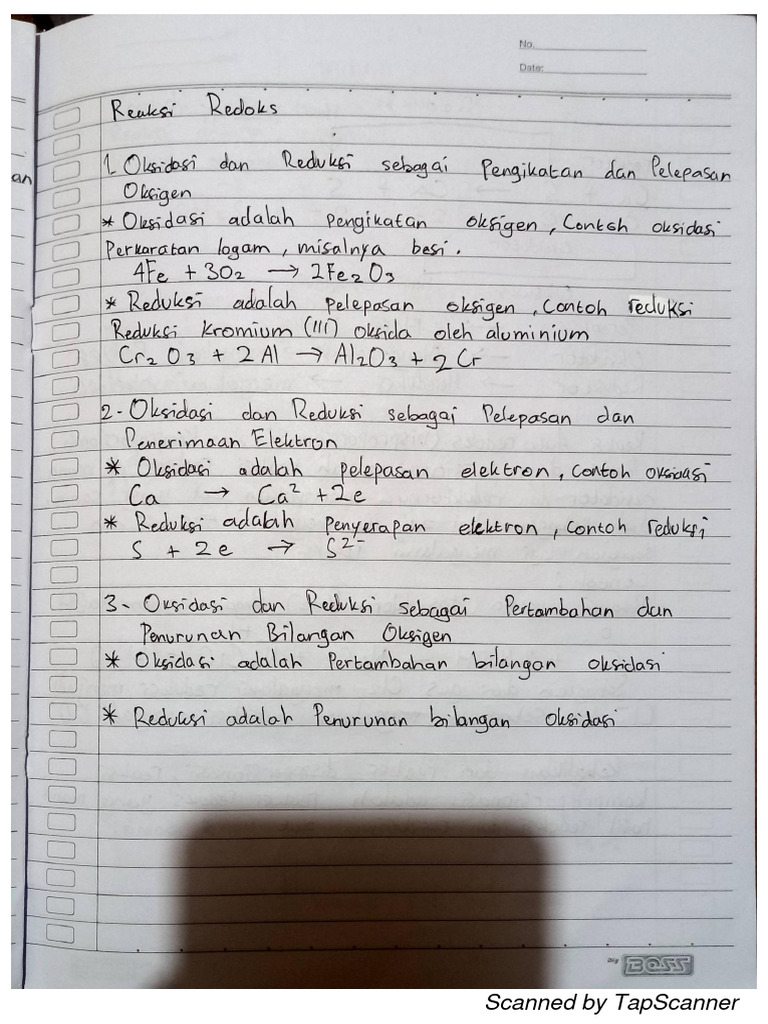 No.
Date:
Reaksi Redoks
1. Oksidasi dan Reduksi sebagai Pengikatan dan Pelepasan
an
Oksigen
* Oksidasi adalah pengikatan oksigen, Contoh oksidasi
Perkaratan logam, misalnya besi.
4Fe + 3O2 → 2Fe2O3
* Reduksi adalah pelepasan oksigen, Contoh reduksi
Reduksi Kromium (III) oksida oleh aluminium
Cr2O3 + 2Al → Al2O3 + 2Cr
2. Oksidasi dan Reduksi sebagai Pelepasan dan
Penerimaan Elektron
* Oksidasi adalah pelepasan elektron, contoh oksidasi
Ca → Ca² + 2e
* Reduksi adalah Penyerapan elektron, contoh reduksi
S + 2e → S²⁻
3. Oksidasi dan Reduksi sebagai Pertambahan dan
Penurunan Bilangan Oksigen
* Oksidasi adalah Pertambahan bilangan oksidasi
* Reduksi adalah Penurunan bilangan oksidasi
BOSS
Scanned by TapScanner